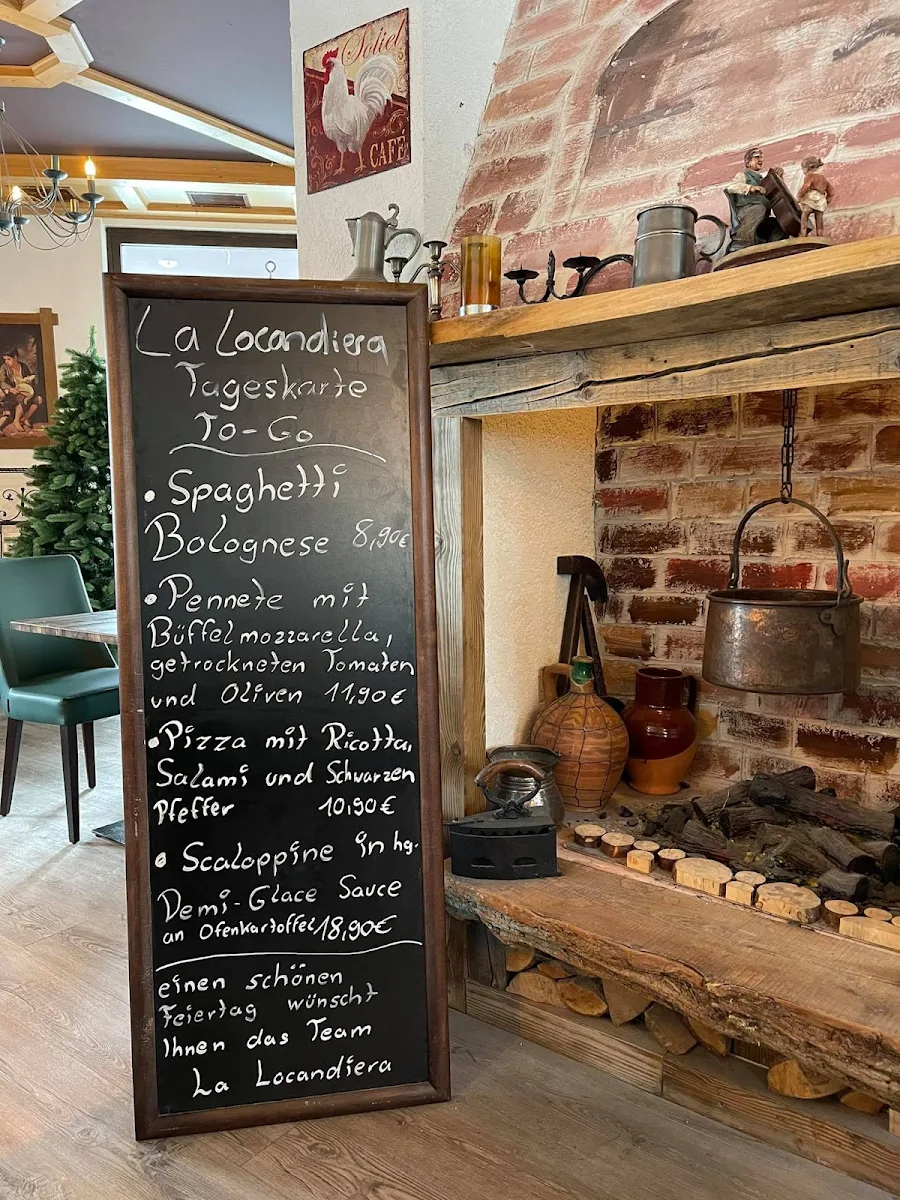 Soliel
CAFÉ
La Locandiera
Tageskarte
To-Go
• Spaghetti
Bolognese 8,90€
• Pennete mit
Büffelmozzarella,
getrockneten Tomaten
und Oliven 11,90€
• Pizza mit Ricotta,
Salami und Schwarzen
Pfeffer 10,90€
• Scaloppine in hg.
Demi-Glace Sauce
an Ofenkartoffel 18,90€
einen schönen
Feiertag wünscht
Ihnen das Team
La Locandiera